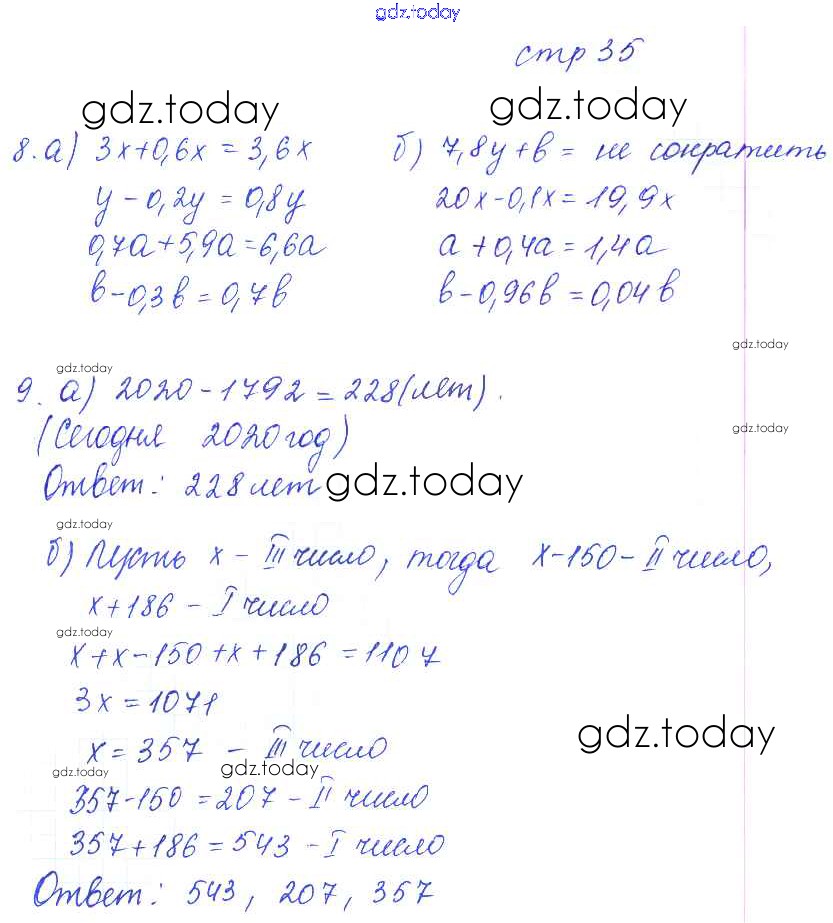 gdz.today
стр 35
gdz.today gdz.today
8. а) 3x+0,6x = 3,6x
y - 0,2y = 0,8y
0,7a+5,9a=6,6a
b-0,3b = 0,7b
б) 7,8y+b = не сократить
20x-0,1x=19,9x
a+0,4a=1,4a
b-0,96b=0,04b
gdz.today
gdz.today
9. а) 2020-1792=228(лет).
(Сегодня 2020год)
gdz.today
Ответ: 228лет gdz.today
gdz.today
б) Пусть x - III число, тогда x-150 - II число,
x+186 - I число
gdz.today
x+x-150+x+186=1107
3x=1071
gdz.today
x=357 - III число
gdz.today gdz.today
357-150=207 - II число
357+186=543 - I число
Ответ: 543, 207, 357